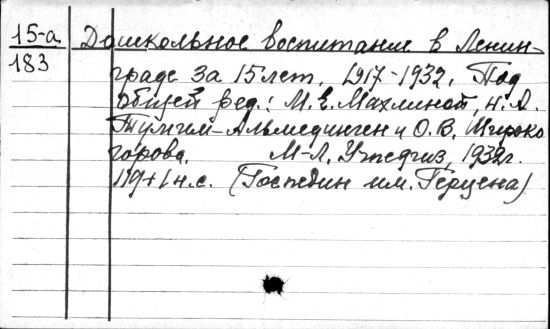 15-а
183
Дошкольное воспитание в Ленин-
граде за 15 лет, 1917-1932. Под
общей ред.: М.Е. Махлиной, Н.А.
Тумгим-Альмединген и О.В. Широко
горова. М-Л, Учпедгиз, 1932г.
119+1 н.с. (Госпедин им. Герцена)